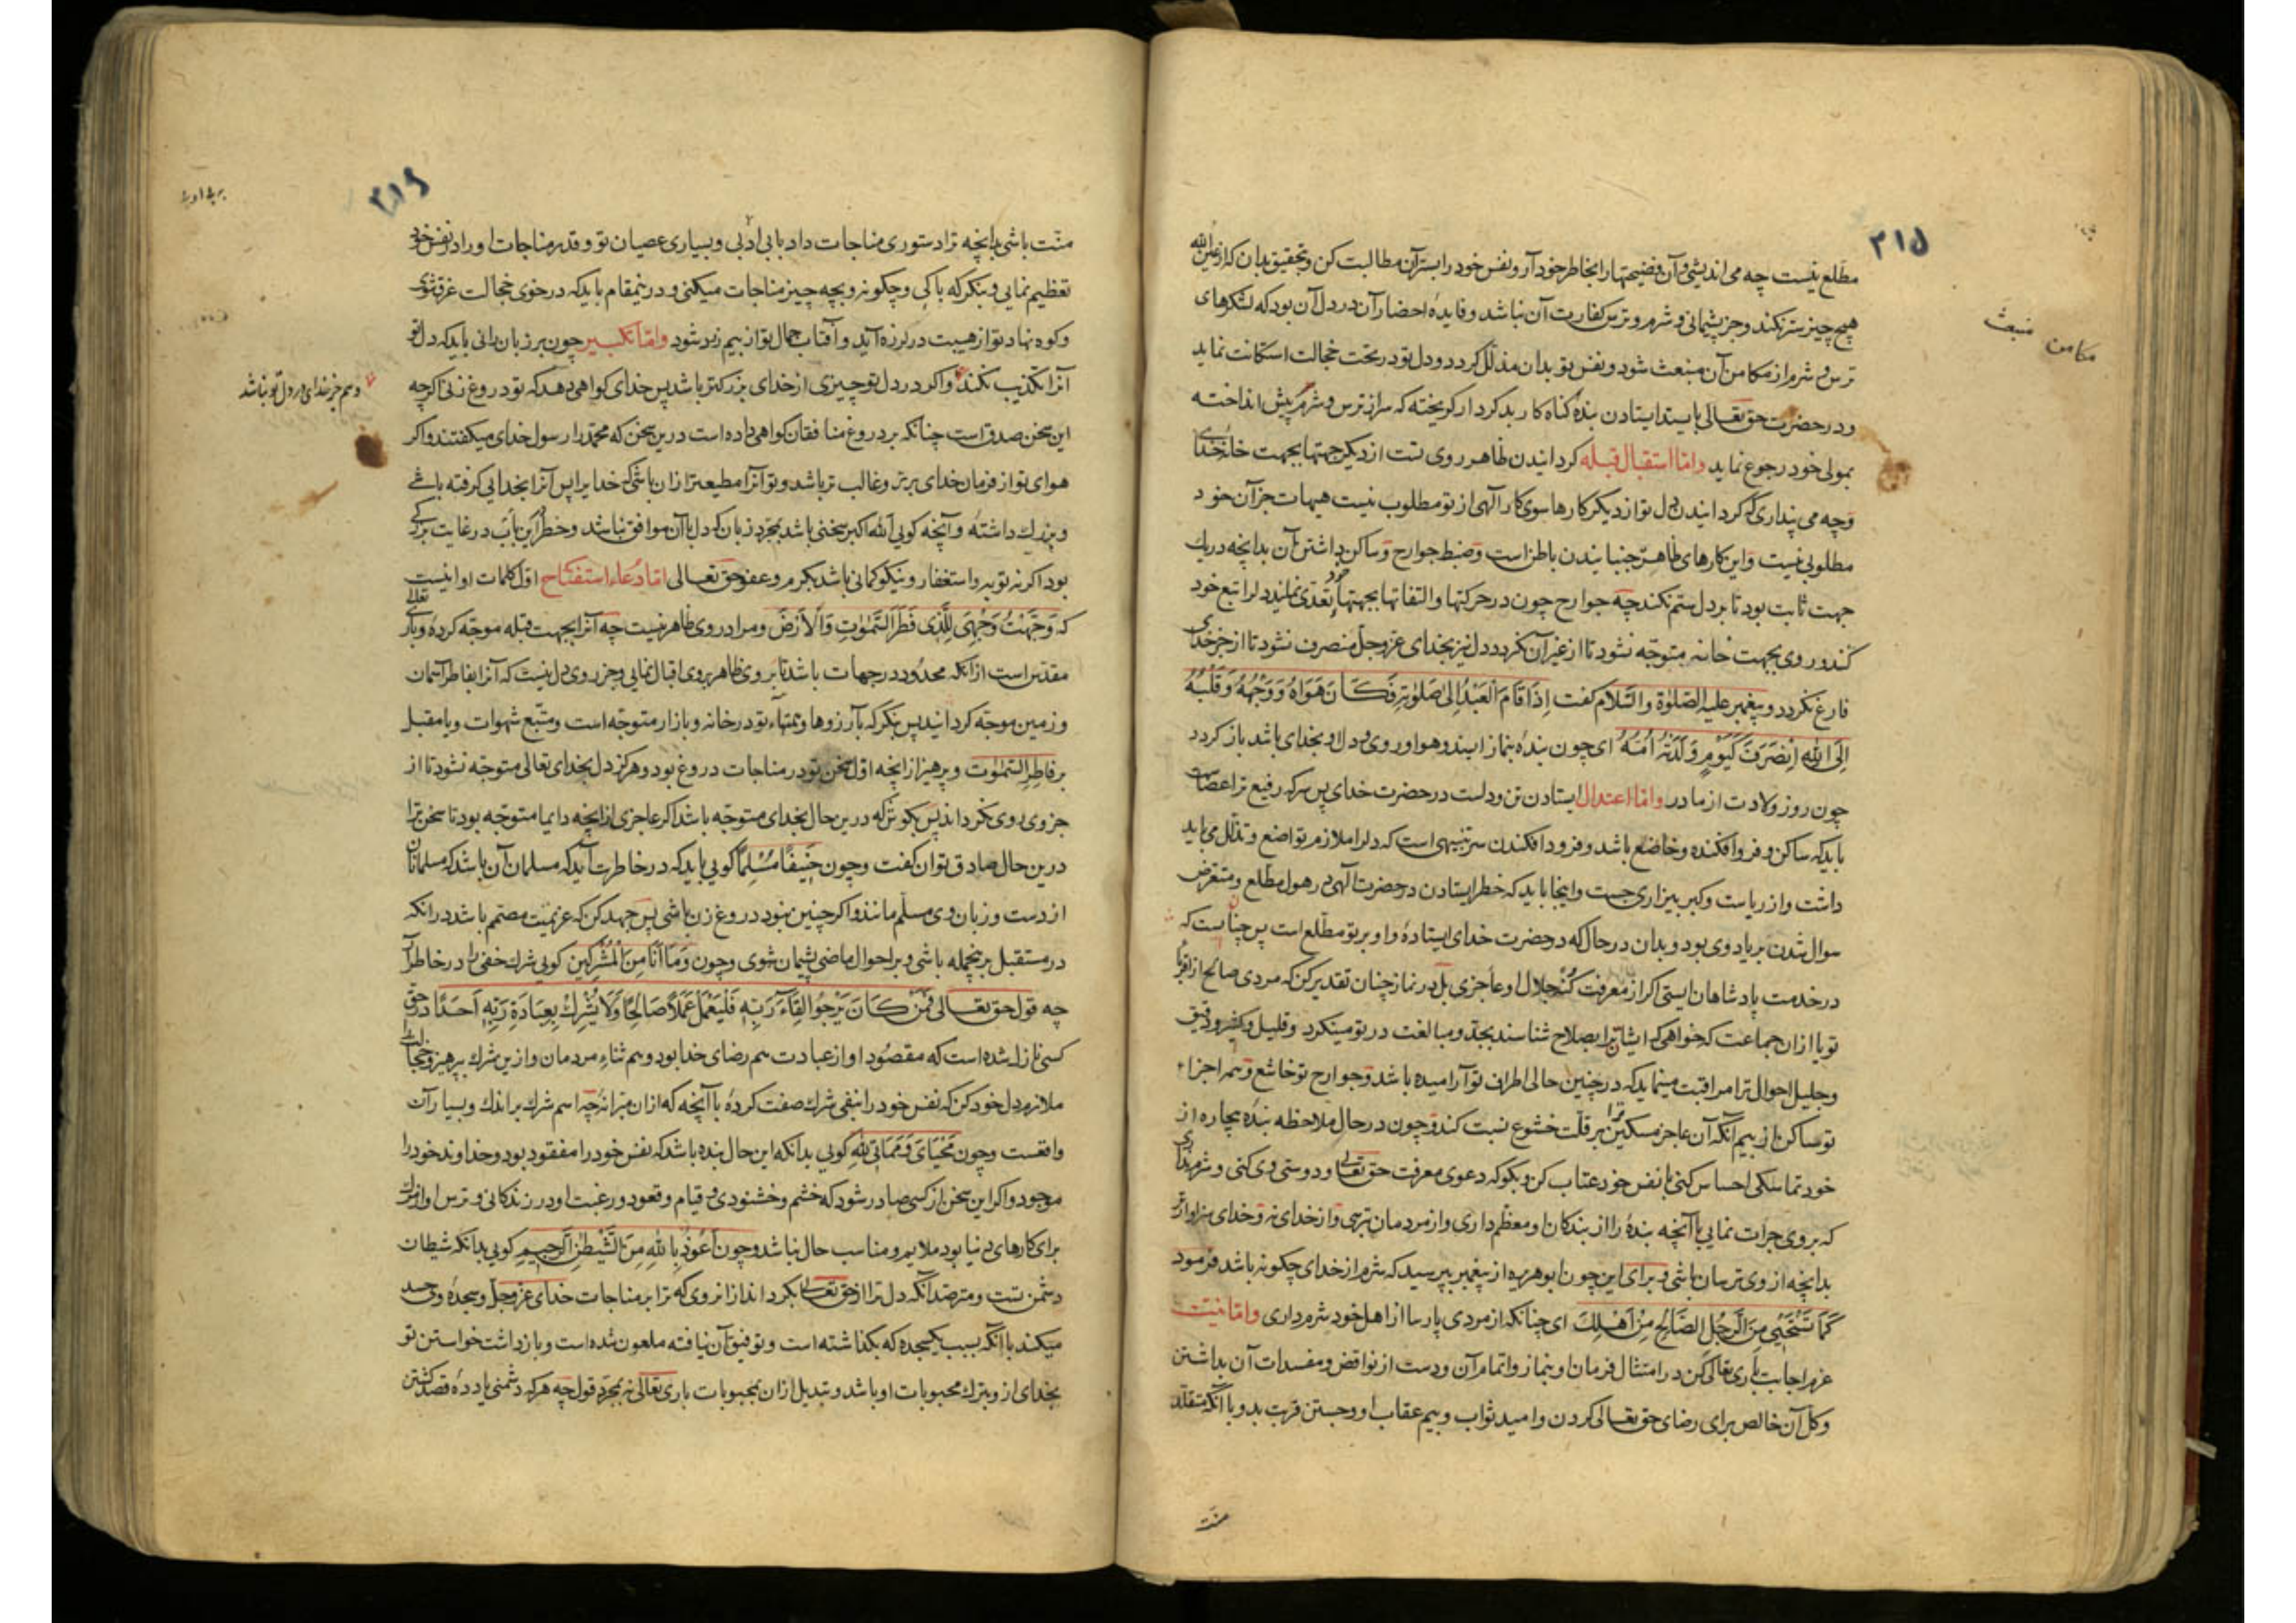 ۳۱۵
مطلع نیست چه می اندیشی و آن فضیحتها را بخاطر خود آر و نفس خود را بستر آن مطالبت کن و بتحقیق بدان که از عین الله
هیچ چیز ستر نکند و جز پشیمانی و شرم و ترس کفارت آن نباشد و فایدهٔ احضار آن در دل آن بود که لشکرهای
ترس و شرم از مکامن آن منبعث شود و نفس تو بدان مذلل کردد و دل تو در تحت خجالت استکانت نماید
مکامن منبعث
و در حضرت حق تعالی بایستد ایستادن بندهٔ کناه کار بد کردار کریخته که سر از ترس و شرم پیش انداخته
بمولی خود رجوع نماید واما استقبال قبله کردانیدن ظاهر روی تست از دیکر جهتها بجهت خانهٔ خدای
و چه می پنداری که کردانیدن دل تو از دیکر کارها سوی کار آلهی از تو مطلوب نیست هیهات جز آن خود
مطلوبی نیست و این کارهای ظاهر جنبانیدن باطن است و ضبط جوارح و ساکن داشتن آن بدانچه در یک
جهت ثابت بود تا بر دل ستم نکند چه جوارح چون در حرکتها و التفاتها بجهتها خود تعدی نمایند دلرا تبع خود
کند و روی بجهت خانه متوجه نشود تا از غیر آن نکردد دل نیز بخدای عزوجل منصرف نشود تا از جز خدای
فارغ نکردد و پیغمبر علیه الصلوة والسلام کفت اِذَا قَامَ الْعَبْدُ اِلیٰ صَلوٰتِهِ فَكَانَ هَوَاهُ وَوَجْهُهُ وَقَلْبُهُ
اِلَی اللهِ اِنْصَرَفَ كَيَوْمٍ وَلَدَتْهُ اُمُّهُ ای چون بنده بنماز ایستد و هوا و روی و دل او بخدای باشد باز کردد
چون روز ولادت از مادر واما اعتدال ایستادن تن و دلست در حضرت خدای پس سر که رفیع تر اعضاست
باید که ساکن و فروافکنده و خاضع باشد و فرود افکندن سر تنبیهی است که دلرا ملازم تواضع و تذلل می باید
داشت و از ریاست و کبر بیزاری جست و اینجا باید که خطر ایستادن در حضرت آلهی در هول مطلع و متعرض
سوال شدن بر یاد وی بود و بدان در حال که در حضرت خدای ایستادهٔ و او بر تو مطلع است پس چنان بایست که
در خدمت پادشاهان ایستی اکر از معرفت کنه جلال او عاجزی بل در نماز چنان تقدیر کن که مردی صالح از اقربا
تو یا از ان جماعت که خواهی که ایشان ترا بصلاح شناسند بجد و مبالغت در تو مینکرد و قلیل و کثیر و دقیق
و جلیل احوال ترا مراقبت مینماید که در چنین حالی اطراف تو آرامیده باشد و جوارح تو خاشع و همه اجزاء
تو ساکن از بیم آنکه آن عاجز مسکین ترا بر قلت خشوع نسبت کند و چون در حال ملاحظه بندهٔ بیچاره از
خود تماسکی احساس کنی با نفس خود عتاب کن و بکو که دعوی معرفت حق تعالی و دوستی وی کنی و شرم نداری
که بر وی جرات نمایی با آنچه بندهٔ را از بندکان او معظم داری و از مردمان ترسی و از خدای نه و خدای سزاوارتر
بدانچه از وی ترسان باشی و برای این چون ابو هریره از پیغمبر پرسید که شرم از خدای چکونه باشد فرمود
كَمَا تَسْتَحْيِي مِنَ الرَّجُلِ الصَّالِحِ مِنْ اَهْلِكَ ای چنانکه از مردی پارسا از اهل خود شرم داری واما نیت
عزم اجابت باری تعالی کن در امتثال فرمان او بنماز و اتمام آن و دست از نواقض و مفسدات آن بداشتن
و کل آن خالص برای رضای حق تعالی کردن و امید ثواب و بیم عقاب او و جستن قربت بدو با آنکه متقلد
منت
۳۱۶
منت باشی بدانچه ترا دستوری مناجات داد با بی ادبی و بسیاری عصیان تو و قدر مناجات او را در نفس خود
تعظیم نمایی و بنکر که با کی و چکونه و بچه چیز مناجات میکنی و درینمقام باید که در خوی خجالت غرق شوی
و کوه نهاد تو از هیبت در لرزه آید و آفتاب جمال تو از بیم زرد شود واما تکبیر چون بر زبان رانی باید که دل تو
آنرا تکذیب نکند و اکر در دل تو چیزی از خدای بزرکتر باشد پس خدای کواهی دهد که تو دروغ زنی اکرچه
این سخن صدق است چنانکه بر دروغ منافقان کواهی داده است درین سخن که محمد را رسول خدای میکفتند و اکر
هوای تو از فرمان خدای برتر و غالب تر باشد و تو آنرا مطیعتر از ان باشی که خدایرا پس آنرا بخدایی کرفته باشی
و بزرك داشتهٔ و آنچه کویی الله اکبر سخنی باشد بمجرد زبان که دل با آن موافق نباشد و خطر این باب در غایت بزرکی
بود اکر نه توبه و استغفار و نیکو کمانی باشد بکرم و عفو حق تعالی اما دعاء استفتاح اول کلمات او اینست
که وَجَّهْتُ وَجْهِيَ لِلَّذِي فَطَرَ السَّمٰوٰتِ وَالْاَرْضَ و مراد روی ظاهر نیست چه آنرا بجهت قبله موجه کردهٔ و باری تعالی
مقدس است از انکه محدود در جهات باشد تا بروی ظاهر بروی اقبال نمایی و جز روی دل نیست که آنرا بفاطر آسمان
و زمین موجه کردانید پس بنکر که بآرزوها و تمناء تو در خانه و بازار متوجه است و متبع شهوات و یا مقبل
بر فاطر السموات و پرهیز از انچه اول سخن تو در مناجات دروغ بود و هرکز دل بخدای تعالی متوجه نشود تا از
جز وی روی نکرداند پس بکوش که درین حال بخدای متوجه باشد اکر عاجزی از انچه دایما متوجه بود تا سخن ترا
درین حال صادق توان کفت و چون حَنِيفًا مُسْلِمًا کویی باید که در خاطرت آید که مسلمان آن باشد که مسلمانان
از دست و زبان وی مسلم مانند و اکر چنین نبود دروغ زن باشی پس جهد کن که عزیمت مصمم باشد در انکه
در مستقبل برینجمله باشی و بر احوال ماضی پشیمان شوی و چون وَمَا اَنَا مِنَ الْمُشْرِكِينَ کویی شرك خفی را در خاطر آر
چه قول حق تعالی فَمَنْ كَانَ يَرْجُوا لِقَاءَ رَبِّهِ فَلْيَعْمَلْ عَمَلًا صَالِحًا وَلَا يُشْرِكْ بِعِبَادَةِ رَبِّهِ اَحَدًا در حق
کسی نازل شده است که مقصود او از عبادت هم رضای خدا بود و هم ثناء مردمان و ازین شرك بپرهیز و خجالت را
ملازم دل خود کن که نفس خود را بنفی شرك صفت کردهٔ با آنچه که از ان مبرا نهٔ چه اسم شرك بر اندك و بسیار آن
واقعست و چون مَحْيَايَ وَمَمَاتِي لِلّٰهِ کویی بدانکه این حال بنده باشد که نفس خود را مفقود بود و خداوند خود را
موجود و اکر این سخن از کسی صادر شود که خشم و خشنودی و قیام و قعود و رغبت او در زندکانی و ترس او از مرك
برای کارهای دنیا بود ملایم و مناسب حال نباشد و چون اَعُوذُ بِاللهِ مِنَ الشَّيْطٰنِ الرَّجِيمِ کویی بدانکه شیطان
دشمن تست و مترصد آنکه دل ترا از حق تعالی بکرداند از انروی که ترا بر مناجات خدای عزوجل و سجدهٔ وی حسد
میکند با آنکه بسبب یک سجده که بکذاشته است و توفیق آن نیافته ملعون شده است و بازداشت خواستن تو
بخدای از و بترك محبوبات او باشد و تبدیل از ان بمحبوبات باری تعالی نه بمجرد قول چه هر که دشمنی یا دده قصد کشتن
وهم جز خدای در دل تو نباشد